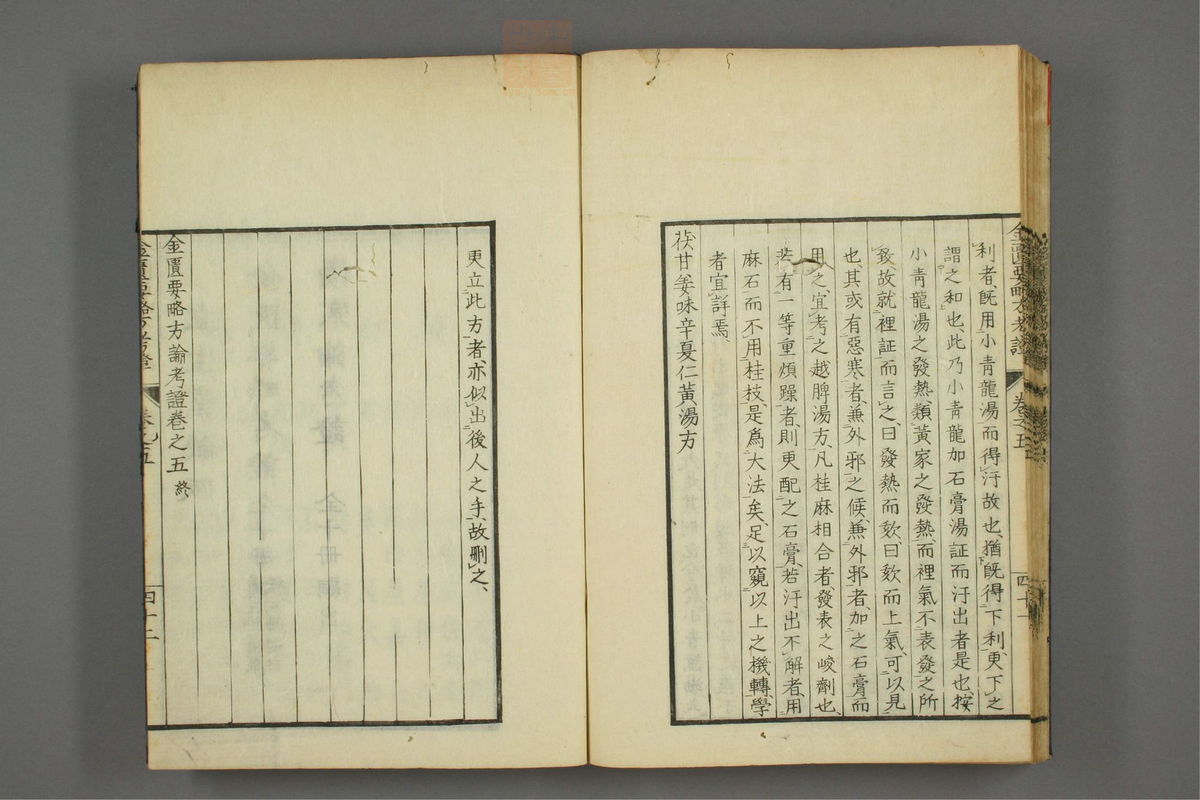 金匱要略方考證 卷之五 四十一
利者、旣用小青龍湯而得汗故也、猶旣得下利、更下之
謂之和也、此乃小青龍加石膏湯証而汗出者是也、按
小青龍湯之發熱、類黃家之發熱、而裡氣不表發之所
致、故就裡証而言之、曰發熱而欬、曰欬而上氣、可以見
也、其或有惡寒、者、兼外邪之候、兼外邪者、加之石膏而
用之、宜考之越脾湯方、凡桂麻相合者、發表之峻劑也、
若有一等重煩躁者、則更配之石膏、若汗出不解者、用
麻石而不用桂枝、是爲大法矣、足以窺以上之機轉、學
者宜詳焉、
茯甘姜味辛夏仁黃湯方
更立此方者、亦似出後人之手、故刪之、
金匱要略方論考證卷之五 終
金匱要略方考證 卷之五 四十二